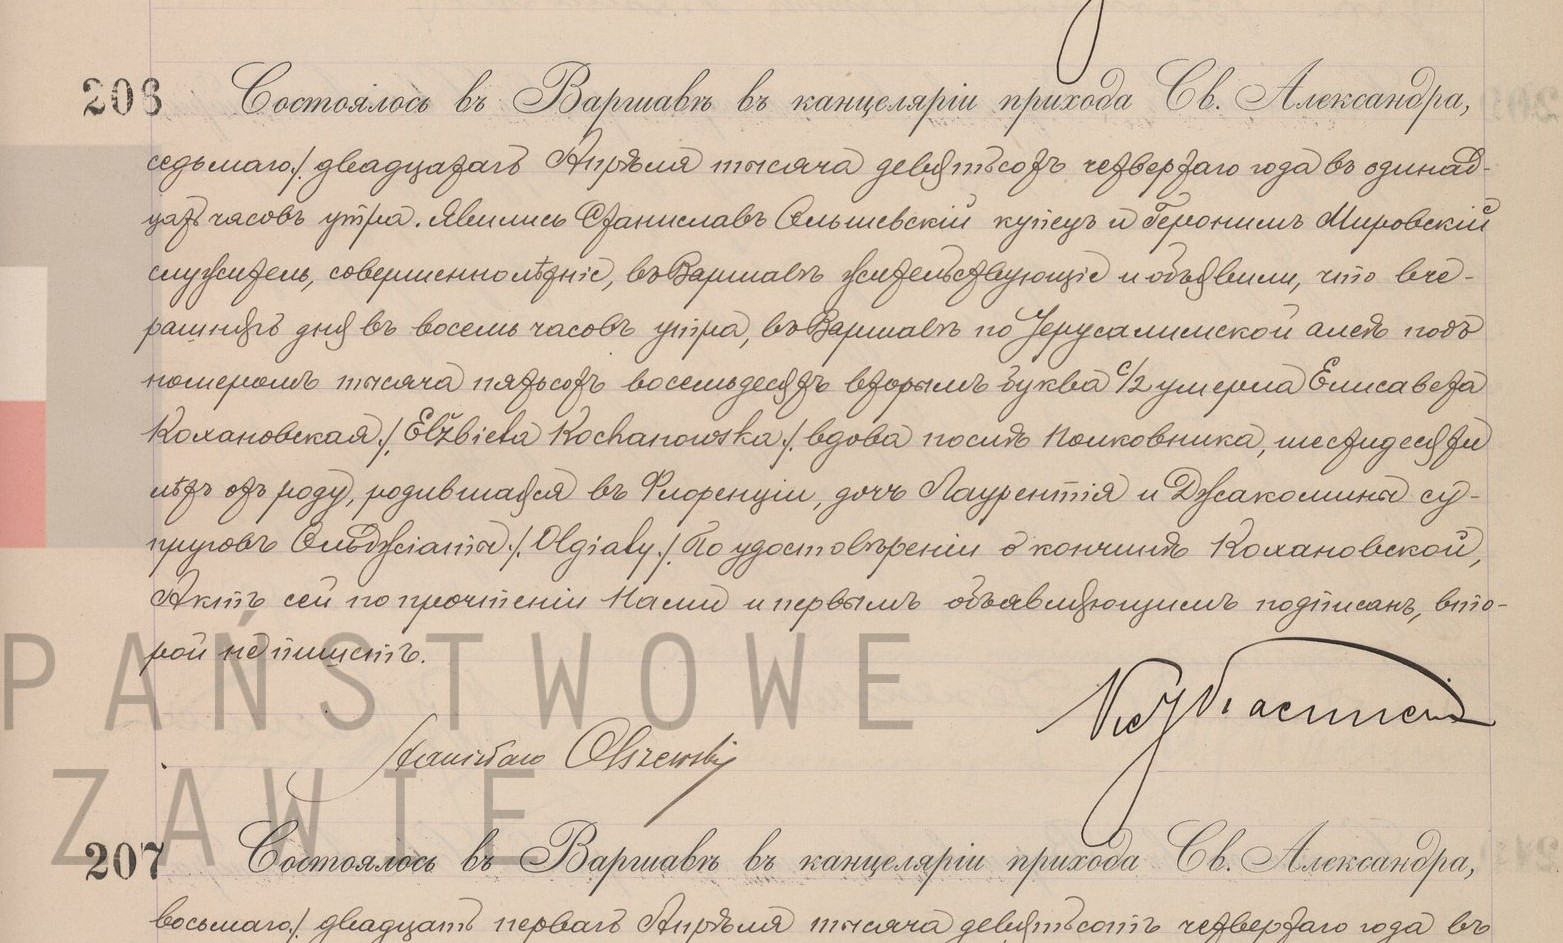 206 Состоялось въ Варшавѣ въ канцеляріи прихода Св. Александра,
седьмаго /. двадцатаго Апрѣля тысяча девятьсотъ четвертаго года въ одинад-
цать часовъ утра. Явились Станиславъ Ольшевскій купецъ и Геронимъ Мировскій
служитель, совершеннолѣтніе, въ Варшавѣ жительствующіе и объявили, что вче-
рашняго дня въ восемь часовъ утра, въ Варшавѣ по Іерусалимской алеѣ подъ
номеромъ тысяча пятьсотъ восемьдесятъ вторымъ буква с/2 умерла Елисавета
Кохановская /. Elżbieta Kochanowska /. вдова послѣ Полковника, шестидесяти
лѣтъ отъ роду, родившаяся въ Флоренціи, дочь Лаурентія и Джакомины су-
пруговъ Ольджіаты /. Olgiaty /. По удостовѣреніи о кончинѣ Кохановской,
Актъ сей по прочтеніи Нами и первымъ объявляющимъ подписанъ, вто-
рой не пишетъ.
Stanisław Olszewski
PAŃSTWOWE
ZAWIE
207 Состоялось въ Варшавѣ въ канцеляріи прихода Св. Александра,
восьмаго /. двадцать перваго Апрѣля тысяча девятьсотъ четвертаго года въ